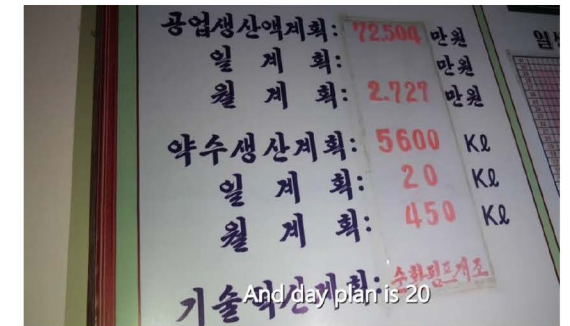 공업생산액계획: 72.504 만원
일 계 획: 만원
월 계 획: 2.727 만원
약수생산계획: 5600 Kℓ
일 계 획: 20 Kℓ
월 계 획: 450 Kℓ
기술혁신계획: 순환뽐프개조
And day plan is 20